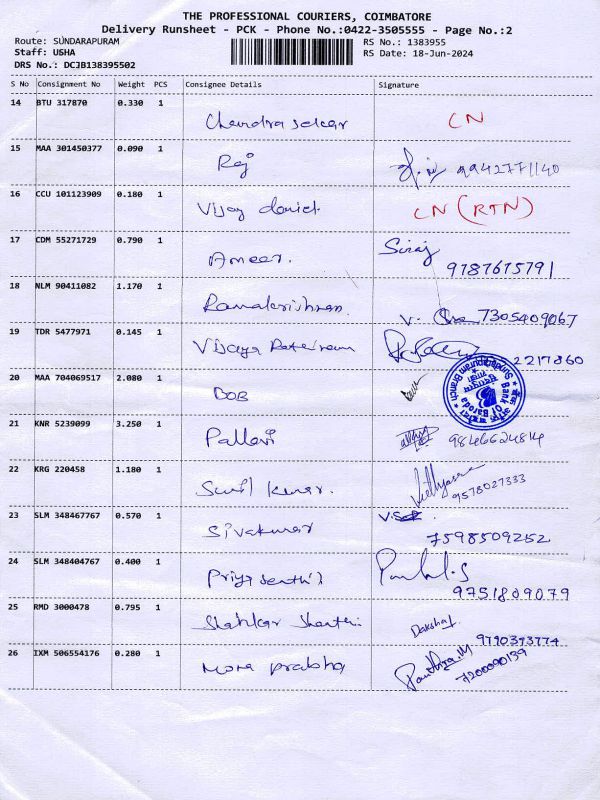 THE PROFESSIONAL COURIERS, COIMBATORE
Delivery Runsheet - PCK - Phone No.:0422-3505555 - Page No.:2
Route: SUNDARAPURAM RS No.: 1383955
Staff: USHA RS Date: 18-Jun-2024
DRS No.: DCJB138395502
S No Consignment No Weight PCS Consignee Details Signature
14 BTU 317870 0.330 1 Chandra sekar CN
15 MAA 301450377 0.090 1 Raj 9942771140
16 CCU 101123909 0.180 1 Vijay daniel. CN (RTN)
17 CDM 55271729 0.790 1 Ameer. Siraj
9787675791
18 NLM 90411082 1.170 1 Ramakrishnan. V. 7305409067
19 TDR 5477971 0.145 1 Vijaya 2217860
20 MAA 704069517 2.080 1 BOB
Bank Of Baroda
Sundarapuram Branch
21 KNR 5239099 3.250 1 Pallavi 9846624814
22 KRG 220458 1.180 1 Sunil kumar. 9578027333
23 SLM 348467767 0.570 1 Sivakumar
7598509252
24 SLM 348404767 0.400 1 Priya Senthil
9751809079
25 RMD 3000478 0.795 1 Shahkar Shanthi
26 IXM 506554176 0.280 1 Mona prabha Pavithra.M
7200090139